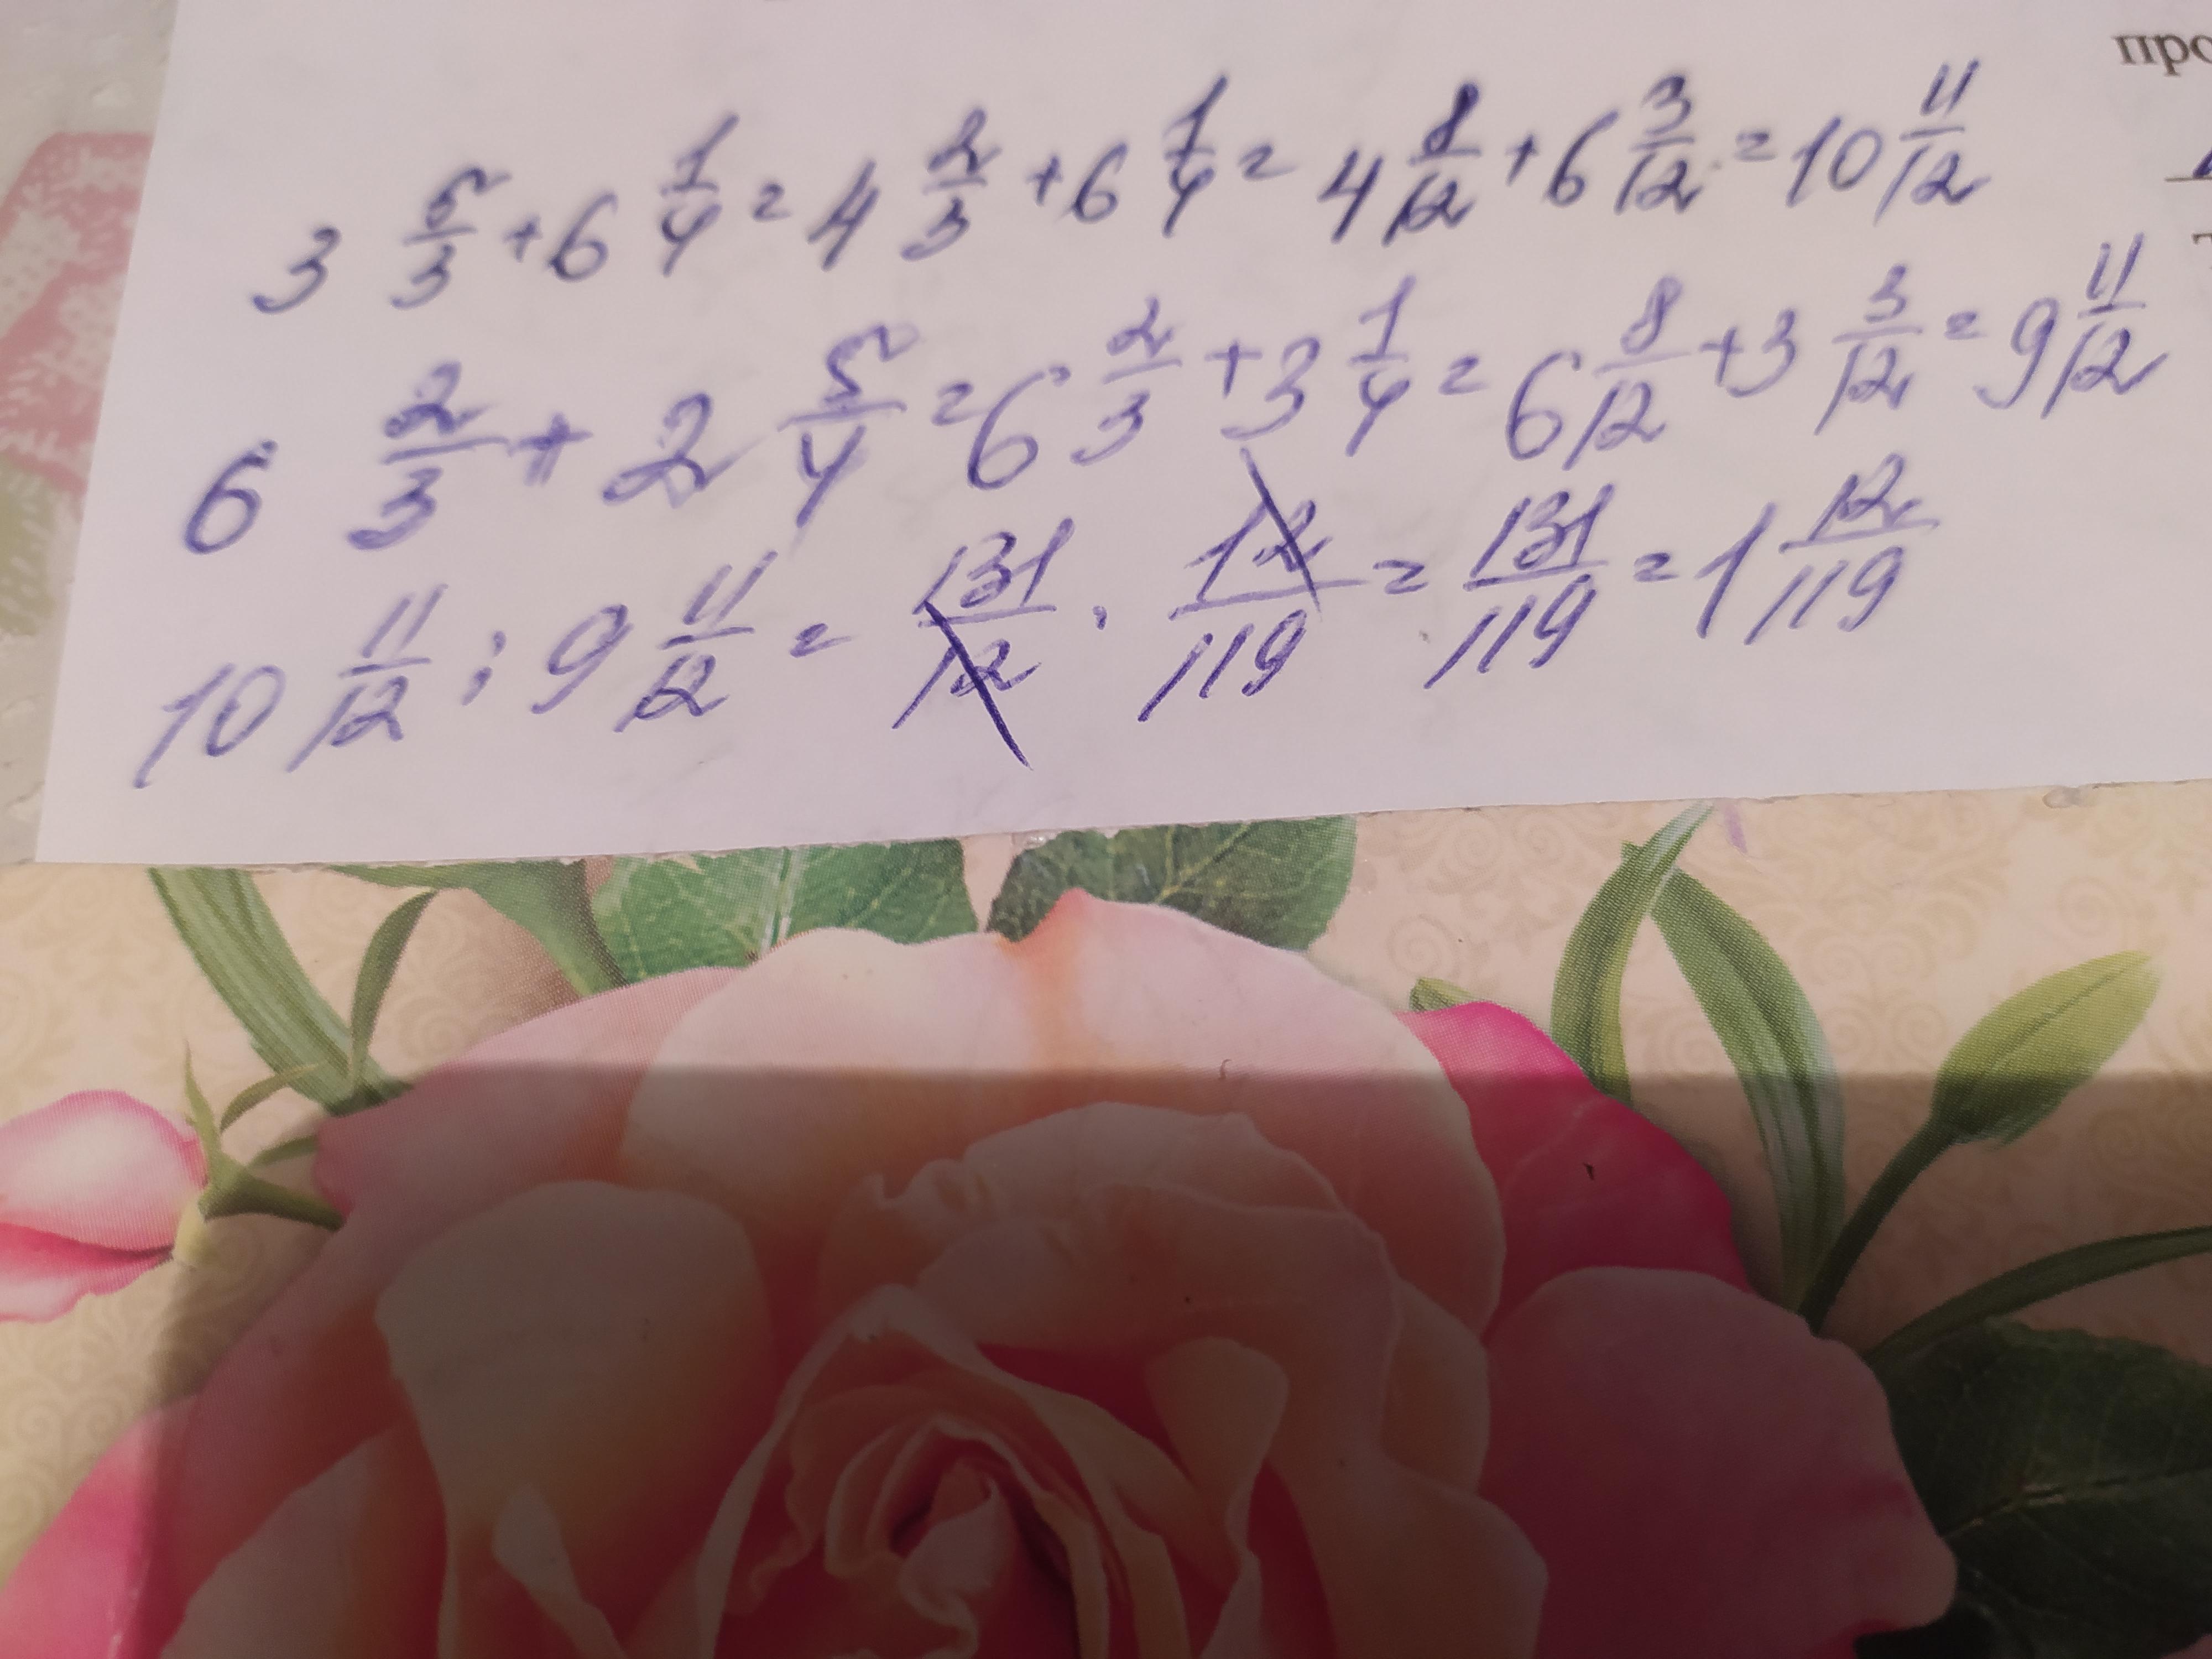 про
3 5/3 + 6 1/4 = 4 2/3 + 6 1/4 = 4 8/12 + 6 3/12 = 10 11/12
6 2/3 + 2 5/4 = 6 2/3 + 3 1/4 = 6 8/12 + 3 3/12 = 9 11/12
10 11/12 : 9 11/12 = 131/12 · 12/119 = 131/119 = 1 12/119